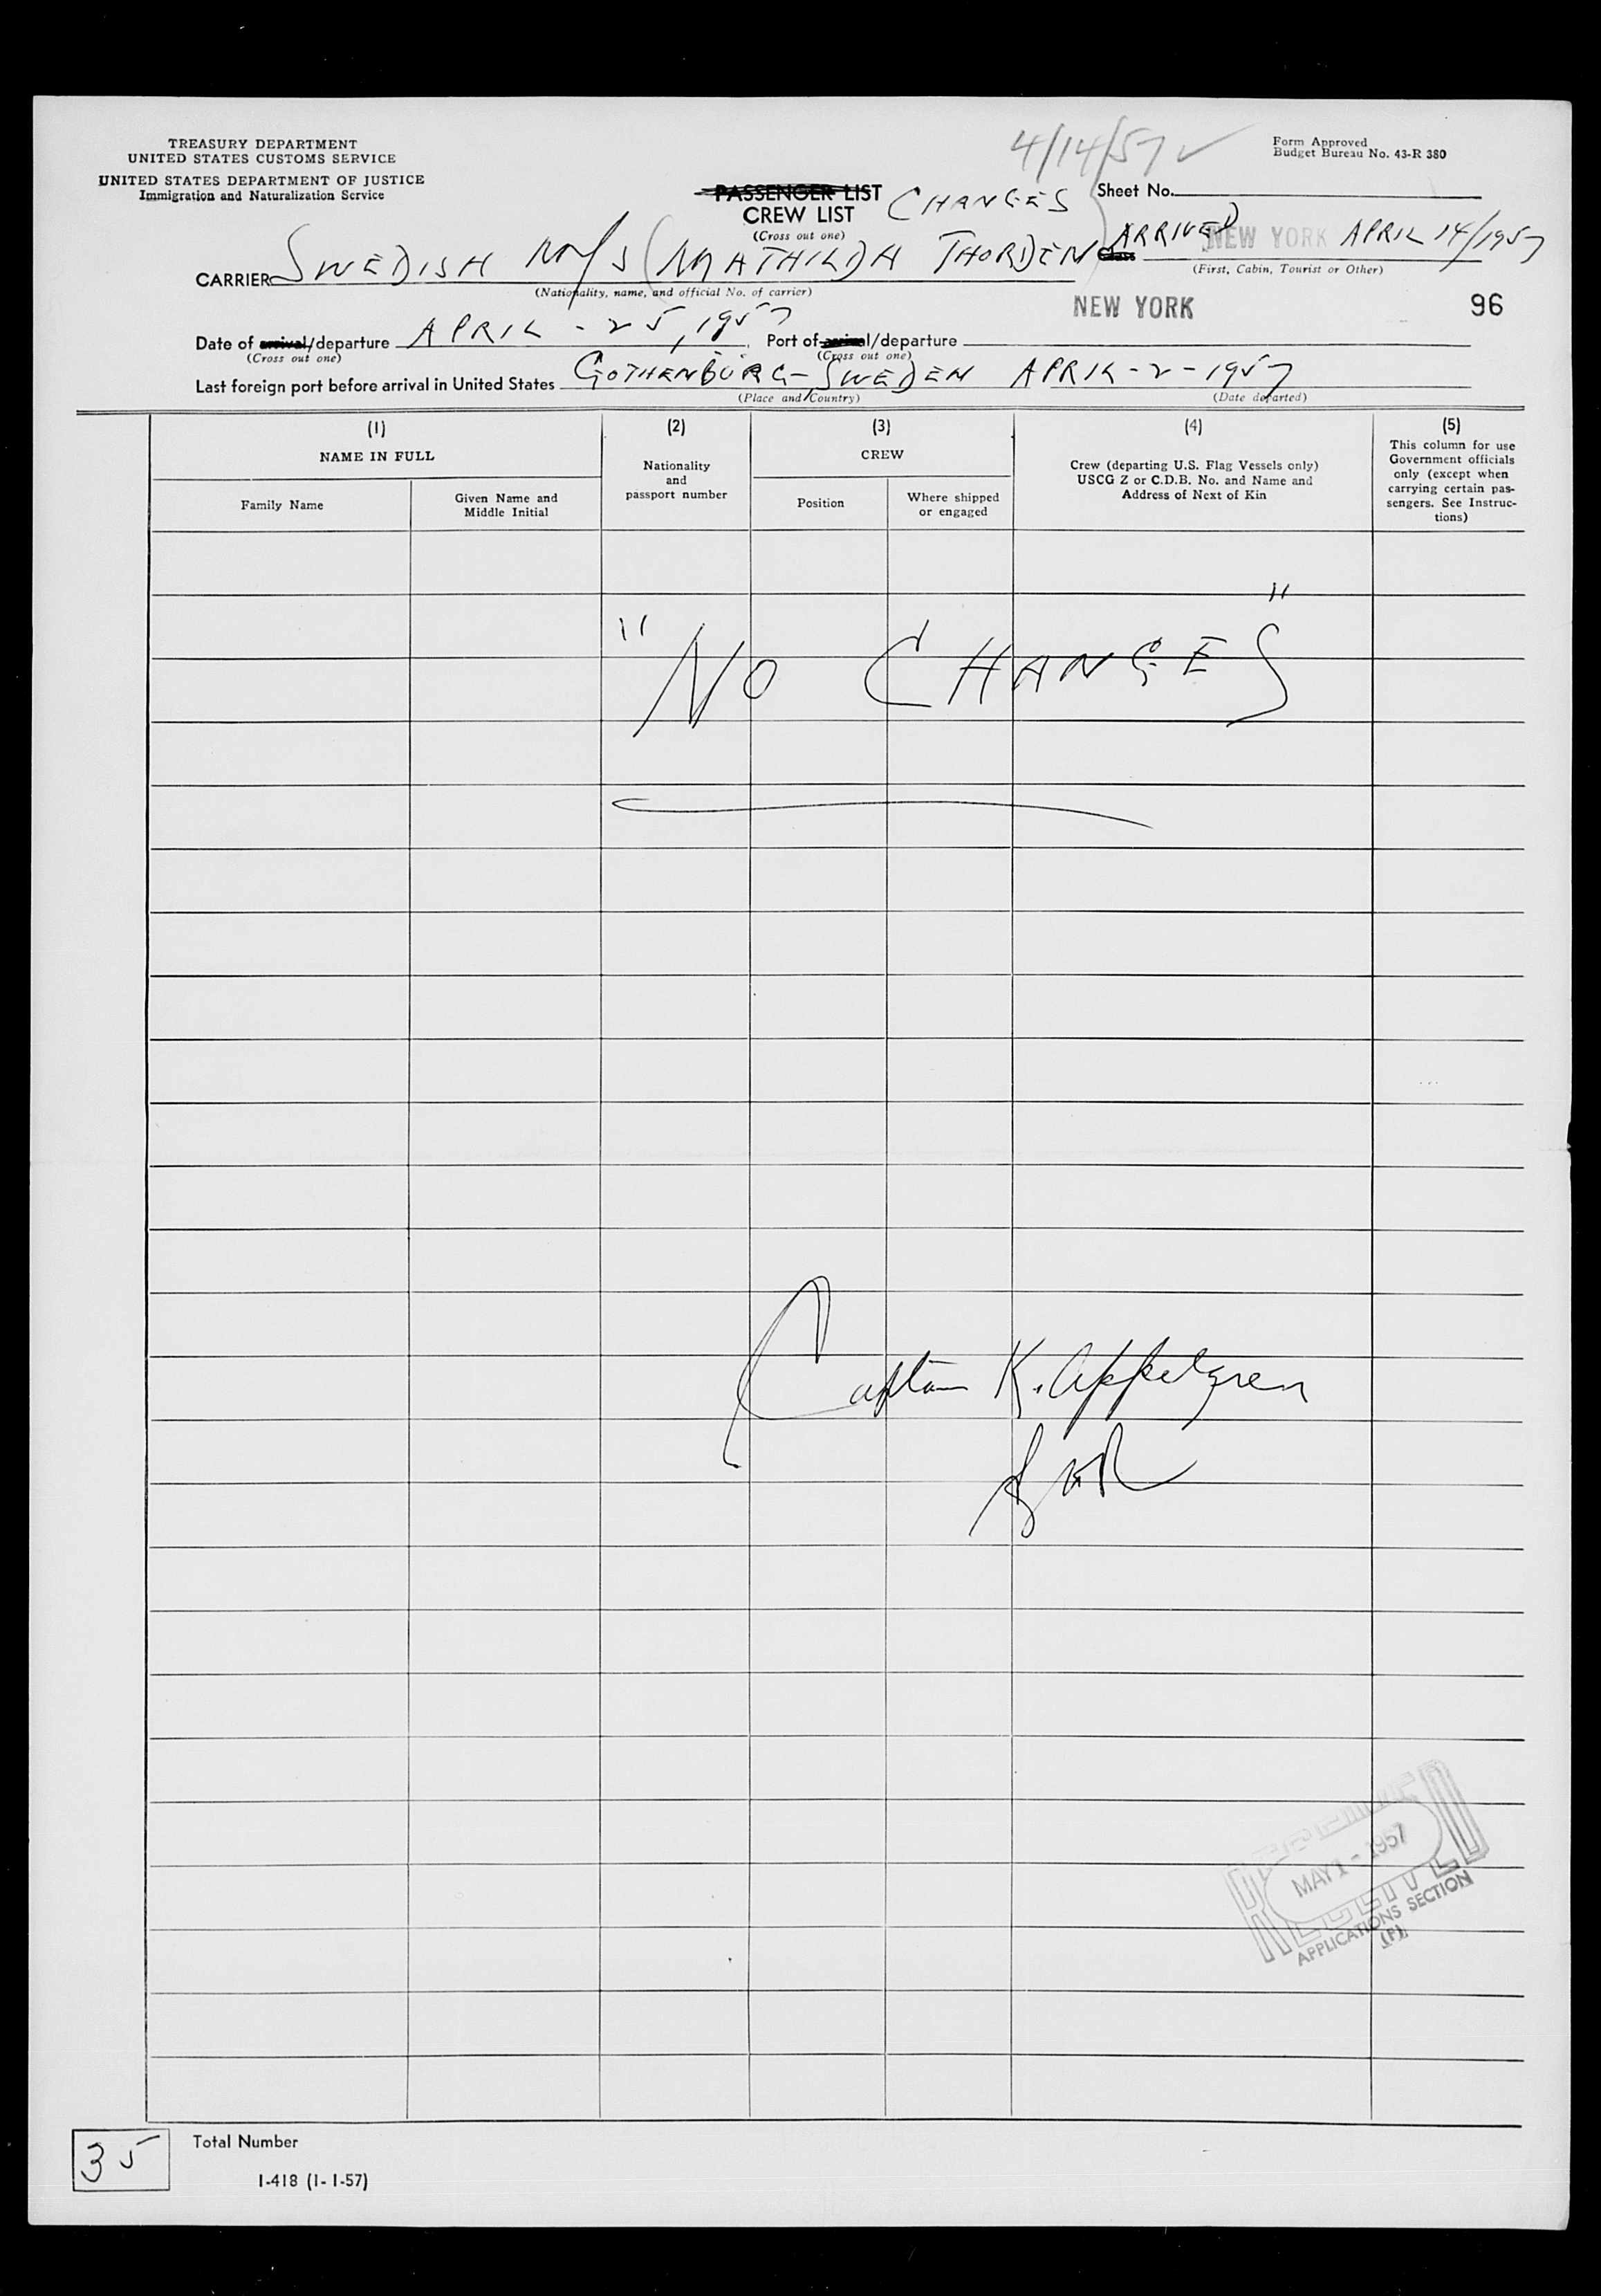 TREASURY DEPARTMENT
UNITED STATES CUSTOMS SERVICE
UNITED STATES DEPARTMENT OF JUSTICE
Immigration and Naturalization Service
4/14/57 ✓
Form Approved
Budget Bureau No. 43-R 380
PASSENGER LIST
CREW LIST CHANGES
(Cross out one)
Sheet No.
CARRIER SWEDISH M/S (MATHILDA THORDEN) Class ARRIVED NEW YORK APRIL 14/1957
(Nationality, name, and official No. of carrier)
(First, Cabin, Tourist or Other)
NEW YORK
96
Date of arrival/departure APRIL - 25, 1957 Port of arrival/departure
(Cross out one)
(Cross out one)
Last foreign port before arrival in United States GOTHENBURG - SWEDEN APRIL - 2 - 1957
(Place and Country)
(Date departed)
(1)
NAME IN FULL
Family Name
Given Name and
Middle Initial
(2)
Nationality
and
passport number
(3)
CREW
Position
Where shipped
or engaged
(4)
Crew (departing U.S. Flag Vessels only)
USCG Z or C.D.B. No. and Name and
Address of Next of Kin
(5)
This column for use
Government officials
only (except when
carrying certain pas-
sengers. See Instruc-
tions)
"NO CHANGES"
Captain K. Appelgren
RECEIVED
MAY 1 - 1957
APPLICATIONS SECTION
(P)
35
Total Number
I-418 (1-1-57)